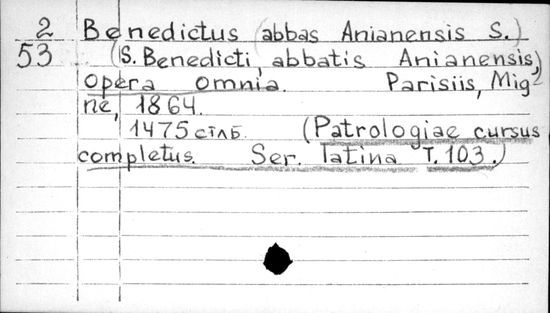 2 Benedictus (abbas Anianensis S.)
53 (S. Benedicti, abbatis Anianensis,)
opera omnia. Parisiis, Mig-
ne, 1864.
1475 стлб. (Patrologiae cursus
completus. Ser. latina T. 103.)